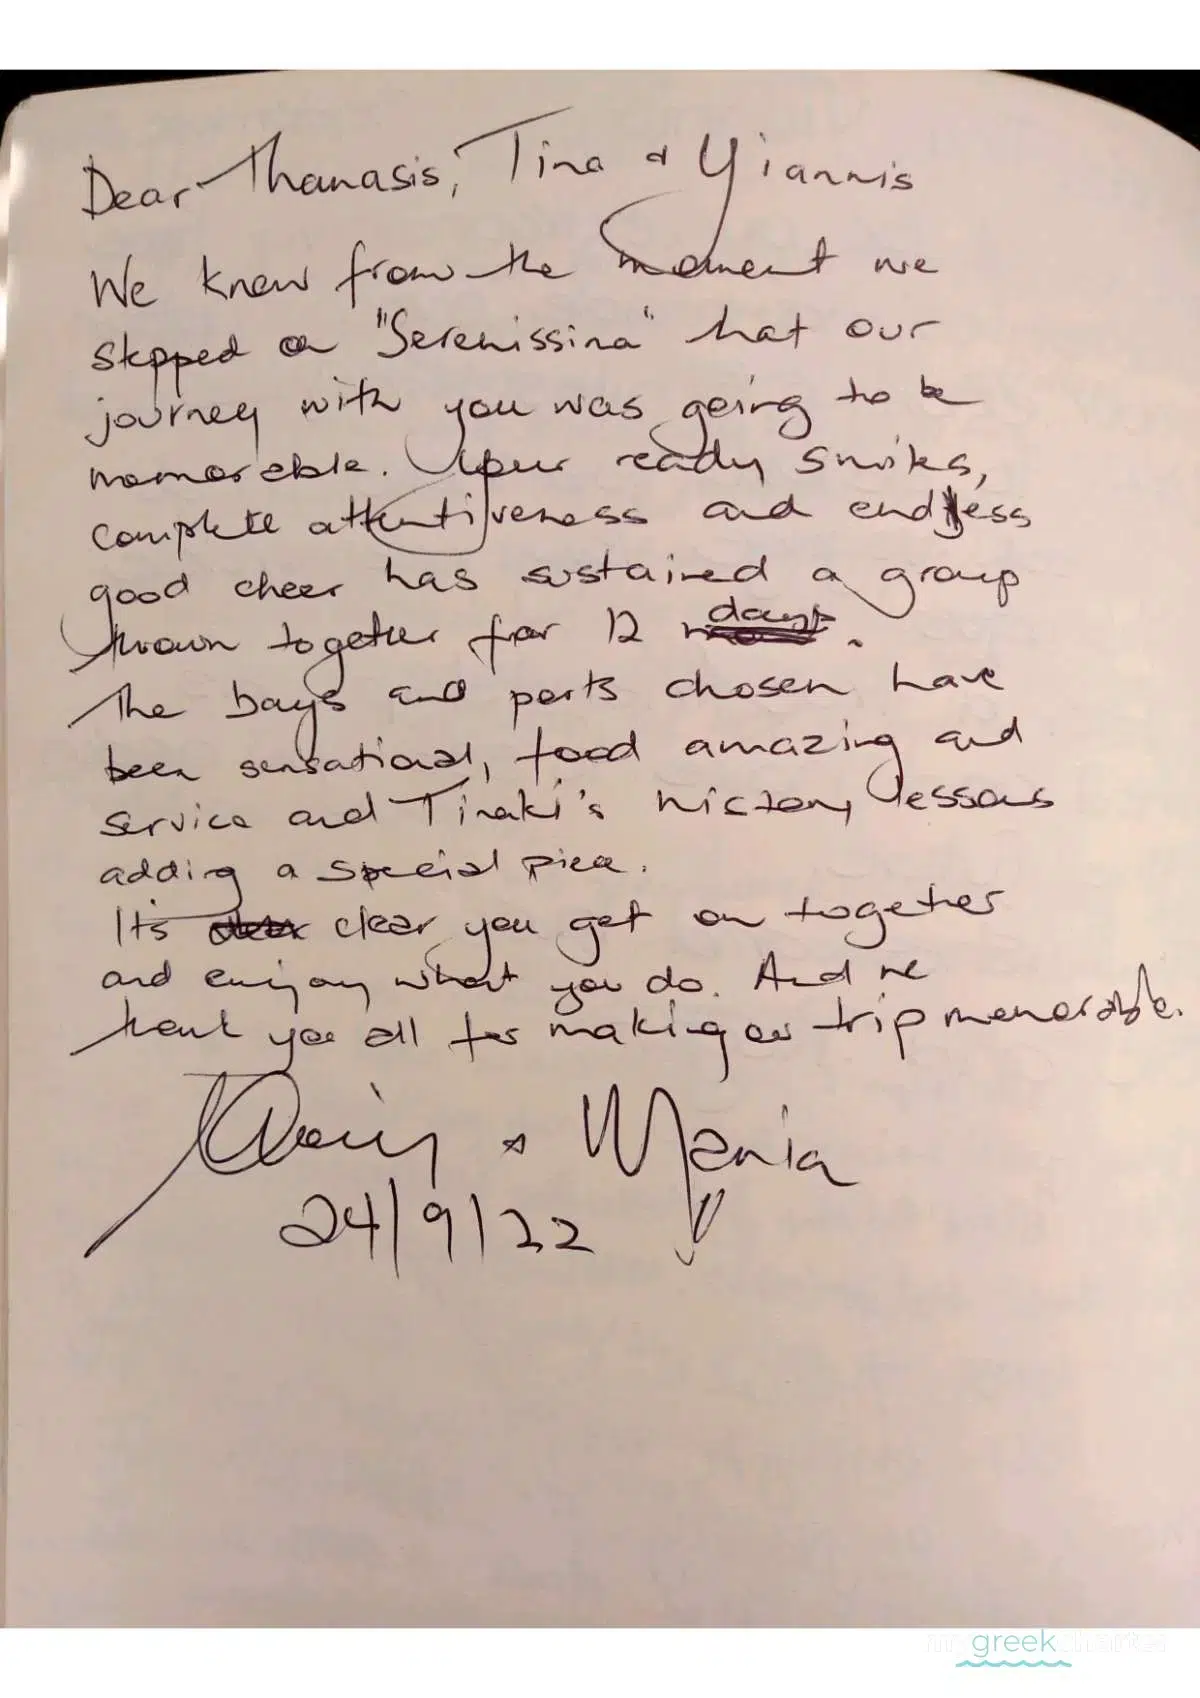 Dear Thanasis, Tina & Yiannis
We knew from the moment we
stepped on "Serenissima" that our
journey with you was going to be
memorable. Your ready smiles,
complete attentiveness and endless
good cheer has sustained a group
thrown together for 12 days.
The bays and ports chosen have
been sensational, food amazing and
service and Tinaki's history lessons
adding a special piece.
It's clear you get on together
and enjoy what you do. And we
thank you all for making our trip memorable.
& Mania
24/9/22
mygreekcharter